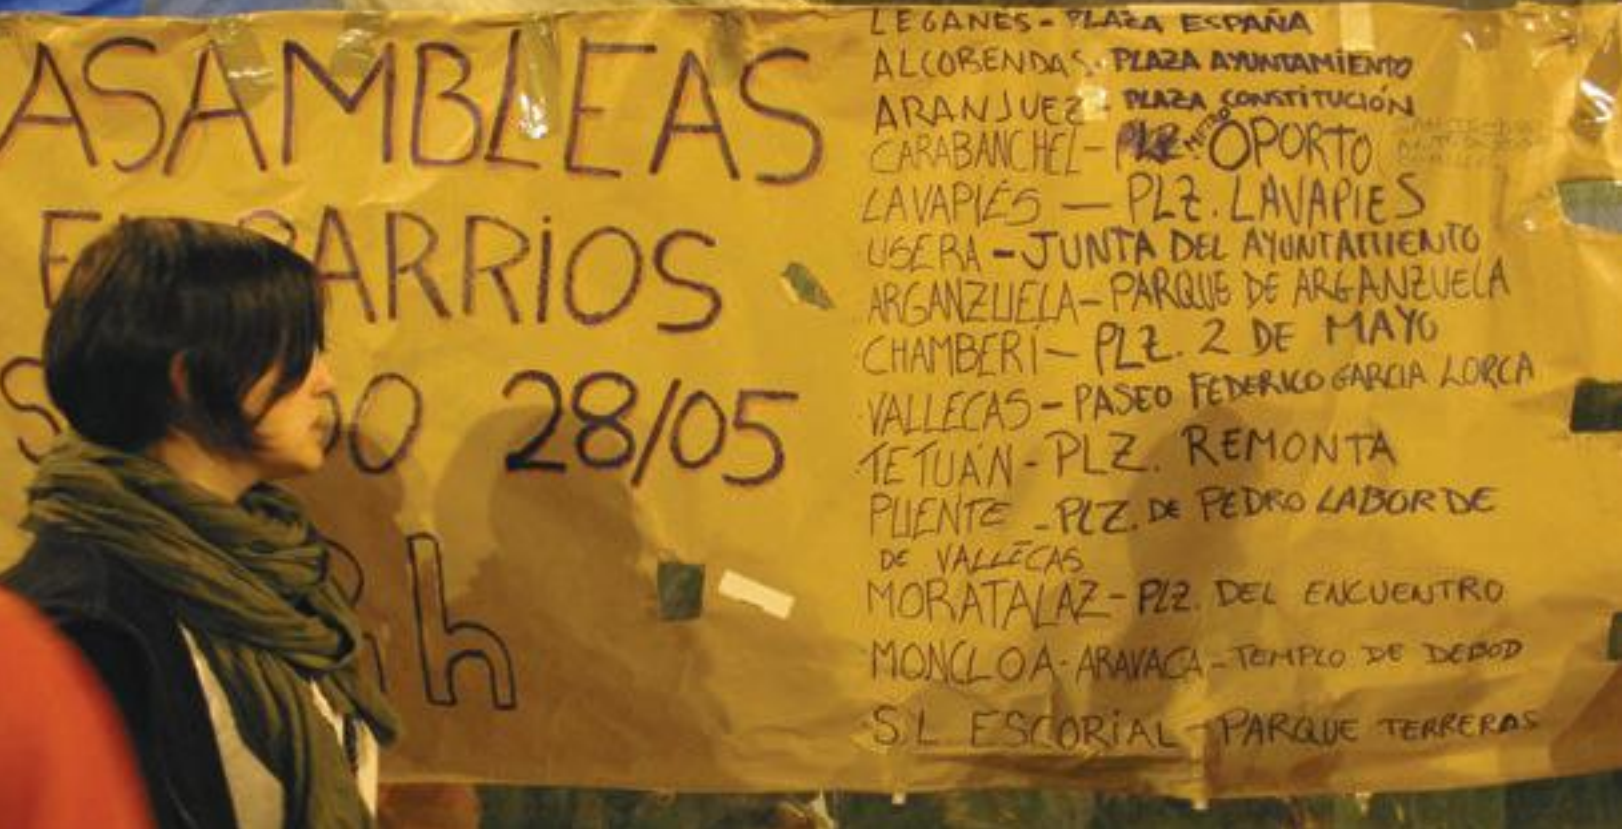 ASAMBLEAS
BARRIOS
28/05
h
LEGANÉS - PLAZA ESPAÑA
ALCOBENDAS - PLAZA AYUNTAMIENTO
ARANJUEZ - PLAZA CONSTITUCIÓN
CARABANCHEL - METRO OPORTO
LAVAPIÉS — PLZ. LAVAPIES
USERA - JUNTA DEL AYUNTAMIENTO
ARGANZUELA - PARQUE DE ARGANZUELA
CHAMBERÍ - PLZ. 2 DE MAYO
VALLECAS - PASEO FEDERICO GARCIA LORCA
TETUÁN - PLZ. REMONTA
PUENTE - PLZ. DE PEDRO LABORDE
DE VALLECAS
MORATALAZ - PLZ. DEL ENCUENTRO
MONCLOA - ARAVACA - TEMPLO DE DEBOD
S.L ESCORIAL - PARQUE TERRERAS